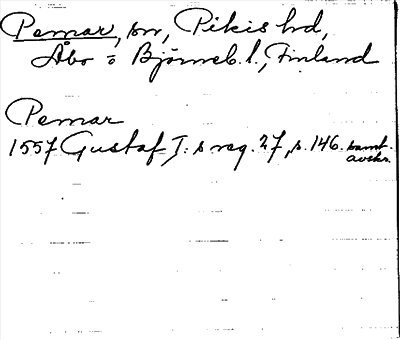 Pemar, sn, Pikis hd,
Åbo o Björneb. l., Finland
Pemar
1557 Gustaf I:s reg. 27, s. 146. samt.
avskr.